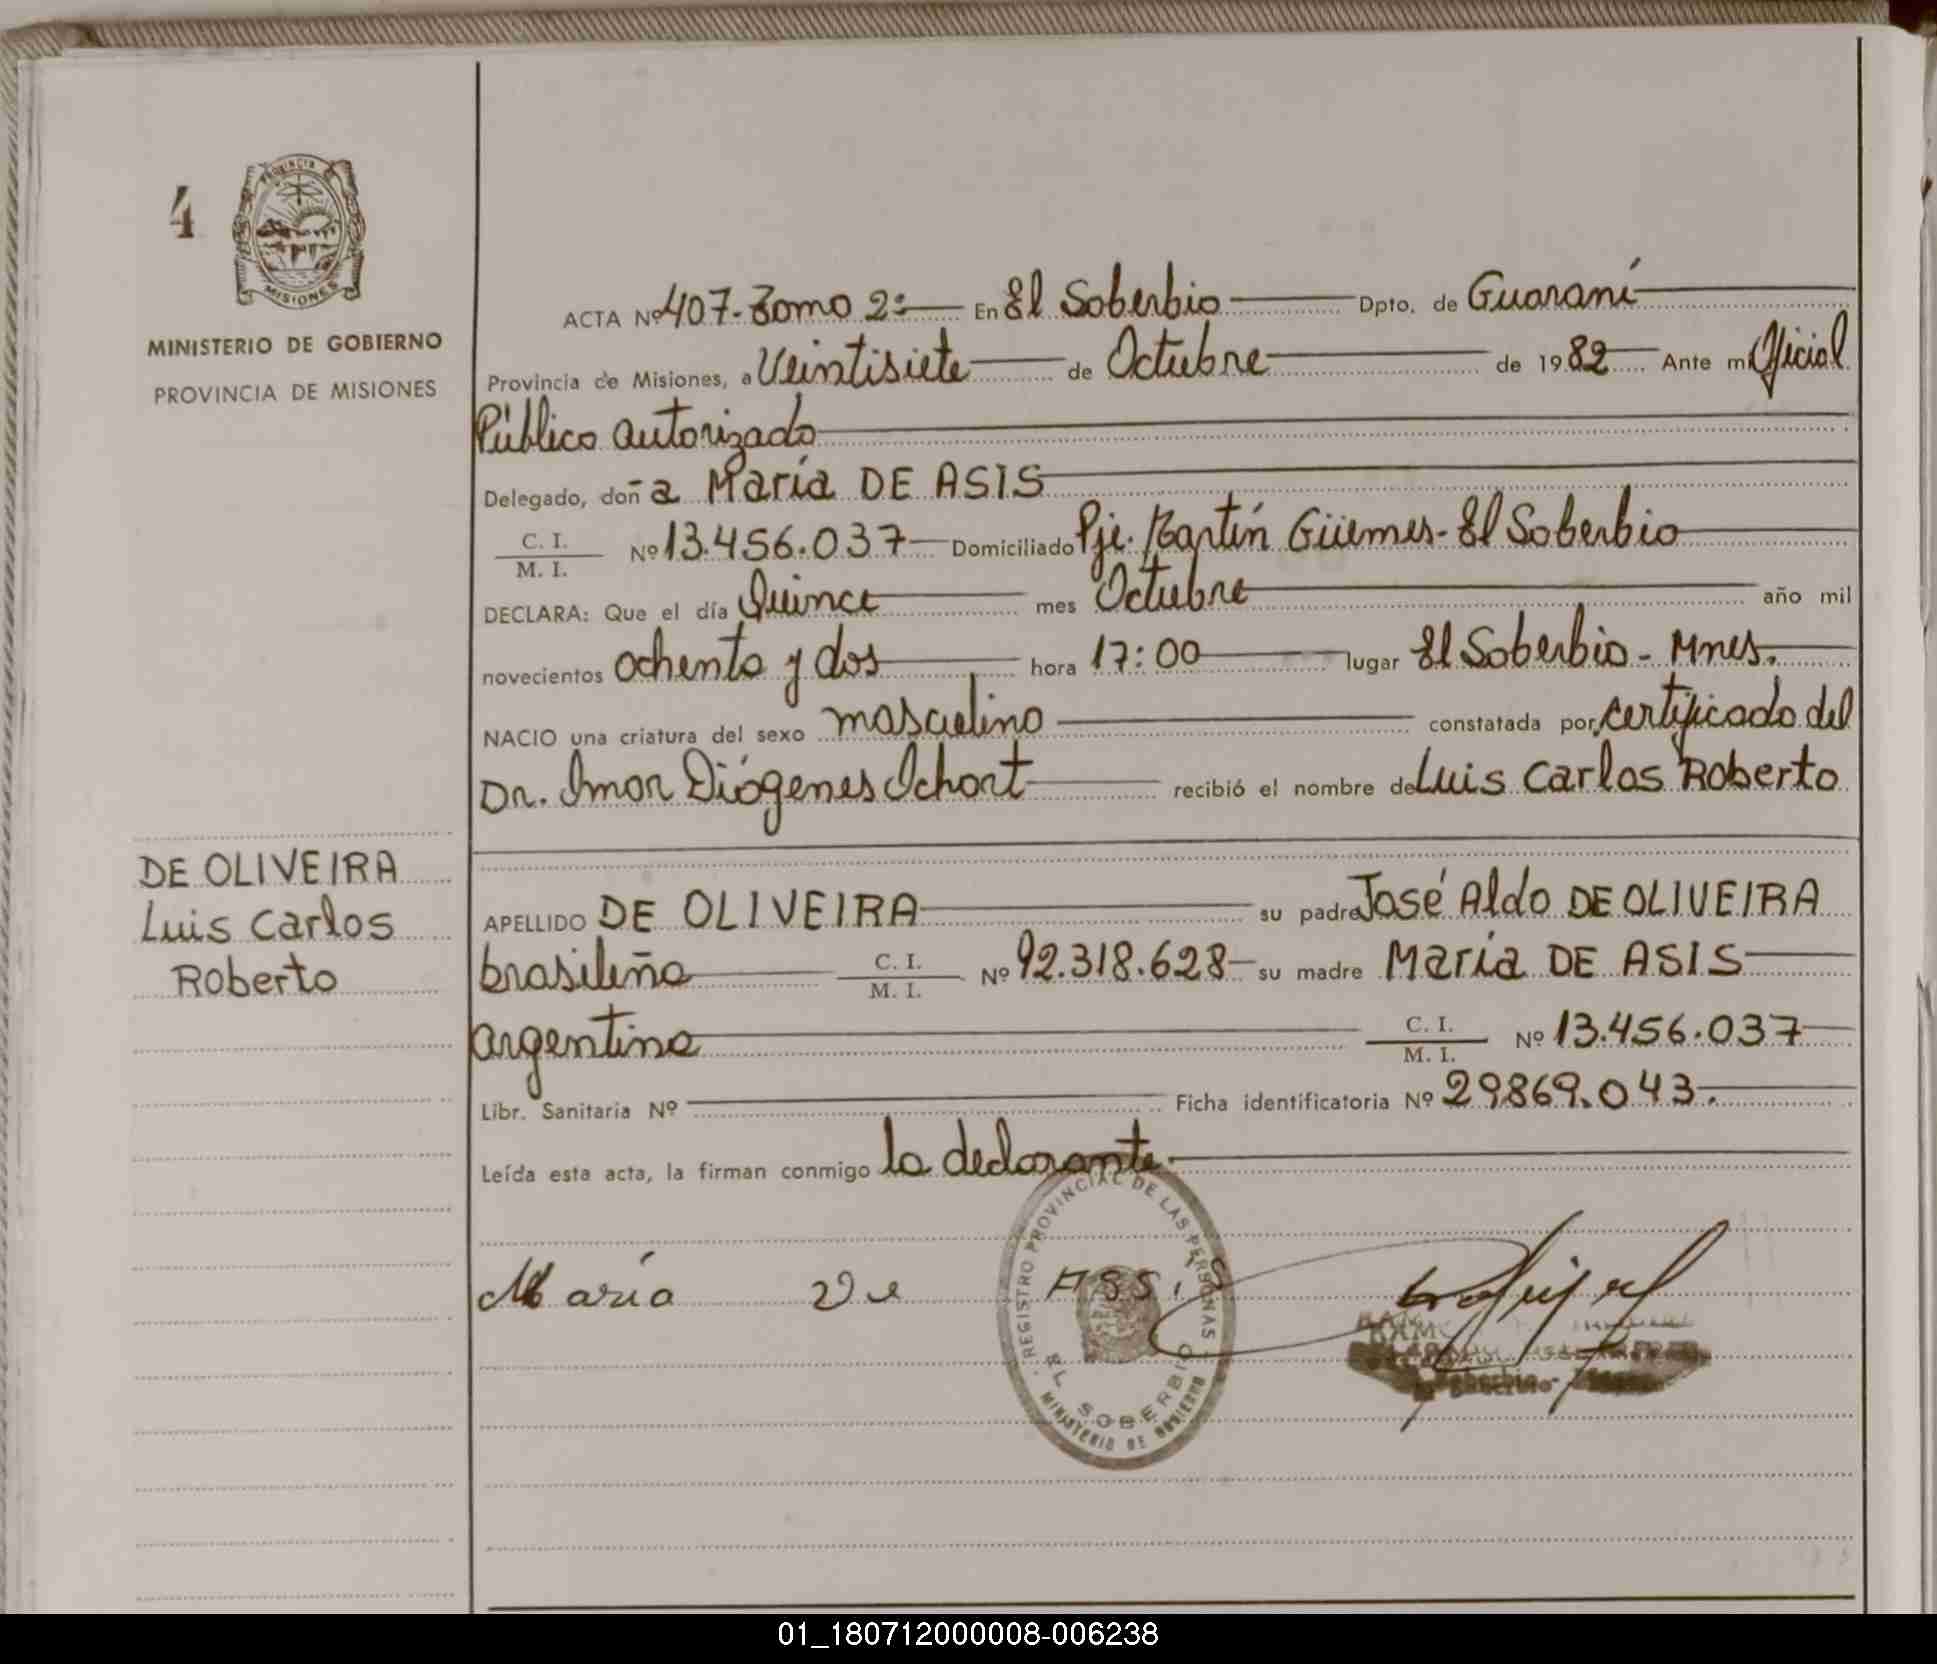 4
PROVINCIA DE
MISIONES
MINISTERIO DE GOBIERNO
PROVINCIA DE MISIONES
ACTA Nº 407-Tomo 2º En El Soberbio Dpto. de Guaraní
Provincia de Misiones, a Veintisiete de Octubre de 1982 Ante mí Oficial
Público autorizado
Delegado, doña María DE ASIS
C. I.
M. I. Nº 13.456.037 Domiciliado Pje. Martín Güemes-El Soberbio
DECLARA: Que el día Quince mes Octubre año mil
novecientos ochenta y dos hora 17:00 lugar El Soberbio - Mnes.
NACIO una criatura del sexo masculino constatada por certificado del
Dr. Imor Diógenes Ichort recibió el nombre de Luis Carlos Roberto
DE OLIVEIRA
Luis Carlos
Roberto
APELLIDO DE OLIVEIRA su padre José Aldo DE OLIVEIRA
brasileño C. I.
M. I. Nº 92.318.628 su madre María DE ASIS
argentina C. I.
M. I. Nº 13.456.037
Libr. Sanitaria Nº Ficha identificatoria Nº 29869.043.
Leída esta acta, la firman conmigo la declarante.
María De Assis
REGISTRO PROVINCIAL DE LAS PERSONAS
EL SOBERBIO
MINISTERIO DE GOBIERNO
01_180712000008-006238